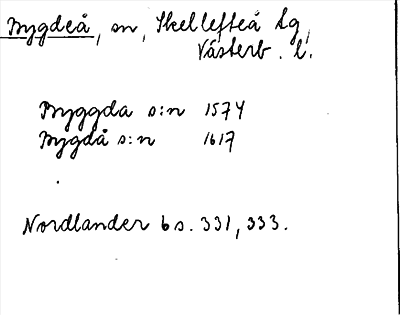 Bygdeå, sn, Skellefteå tg,
Västerb. l.
Byggda s:n 1574
Bygdå s:n 1617
Nordlander 6 s. 331, 333.